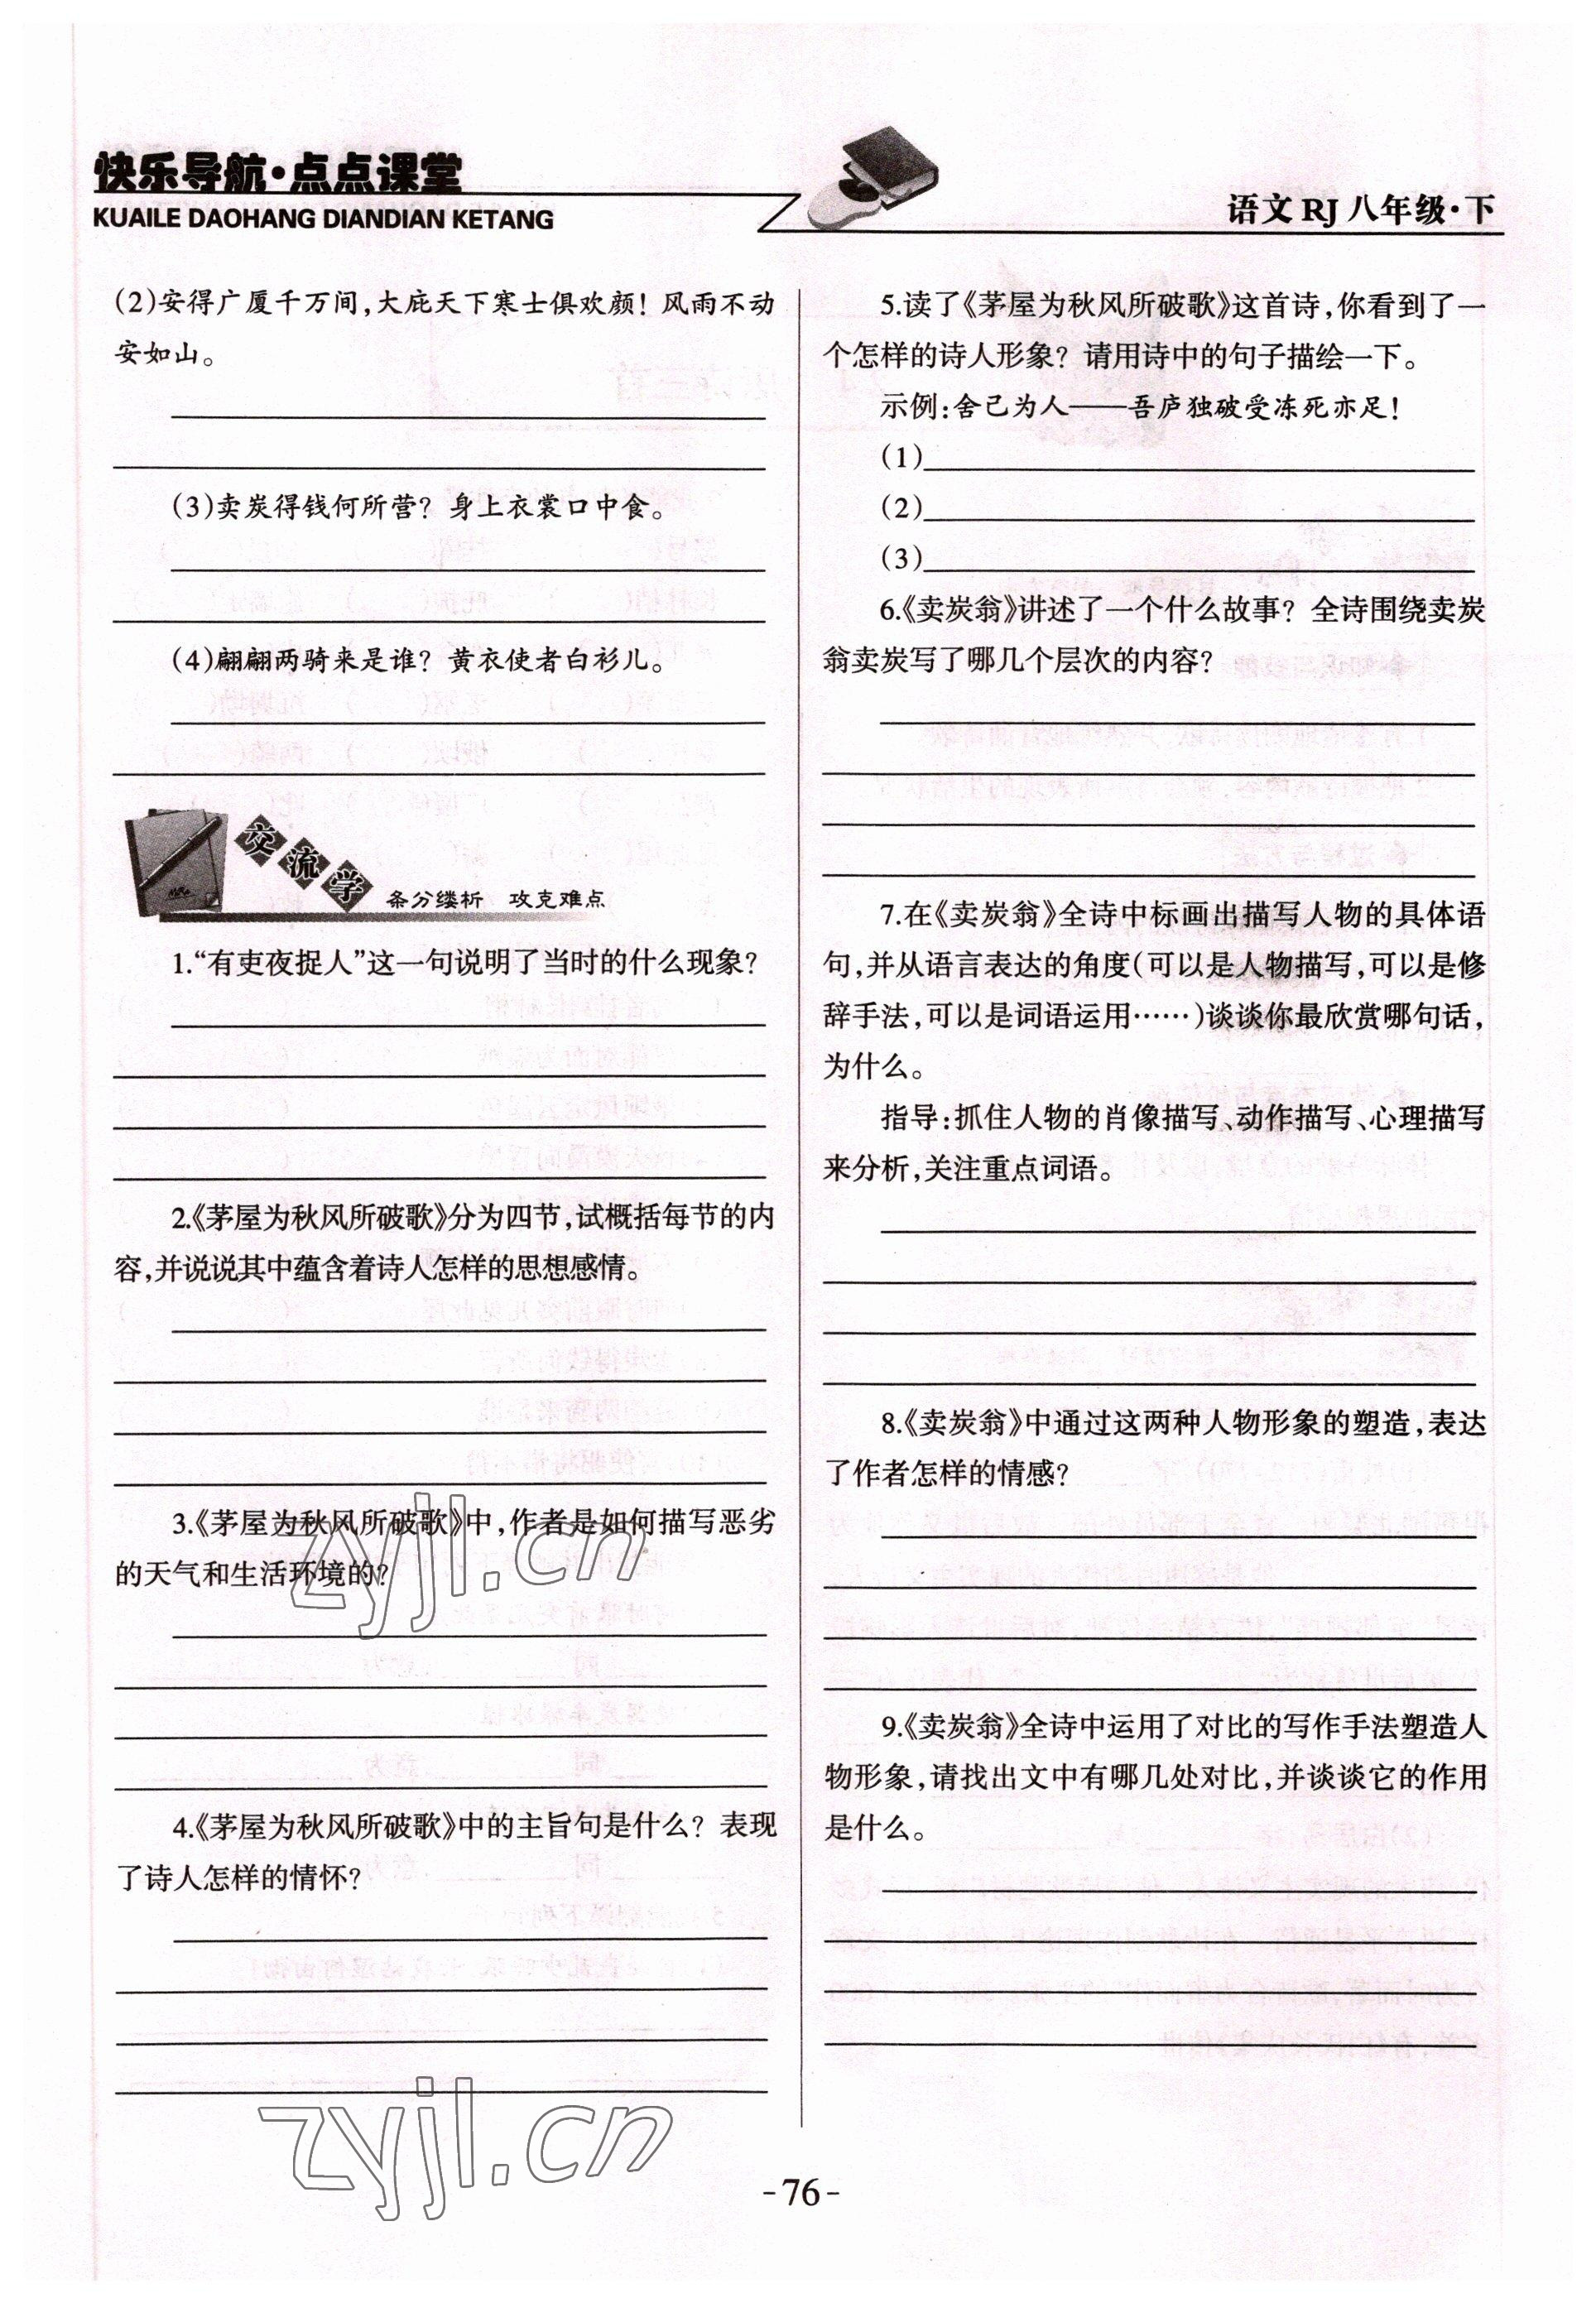 快乐导航·点点课堂
KUAILE DAOHANG DIANDIAN KETANG
语文 RJ 八年级·下
(2)安得广厦千万间，大庇天下寒士俱欢颜！风雨不动
安如山。
(3)卖炭得钱何所营？身上衣裳口中食。
(4)翩翩两骑来是谁？黄衣使者白衫儿。
交流学 条分缕析 攻克难点
1.“有吏夜捉人”这一句说明了当时的什么现象？
2.《茅屋为秋风所破歌》分为四节，试概括每节的内
容，并说说其中蕴含着诗人怎样的思想感情。
3.《茅屋为秋风所破歌》中，作者是如何描写恶劣
的天气和生活环境的？
4.《茅屋为秋风所破歌》中的主旨句是什么？表现
了诗人怎样的情怀？
5.读了《茅屋为秋风所破歌》这首诗，你看到了一
个怎样的诗人形象？请用诗中的句子描绘一下。
示例：舍己为人——吾庐独破受冻死亦足！
(1)
(2)
(3)
6.《卖炭翁》讲述了一个什么故事？全诗围绕卖炭
翁卖炭写了哪几个层次的内容？
7.在《卖炭翁》全诗中标画出描写人物的具体语
句，并从语言表达的角度(可以是人物描写，可以是修
辞手法，可以是词语运用……)谈谈你最欣赏哪句话，
为什么。
指导：抓住人物的肖像描写、动作描写、心理描写
来分析，关注重点词语。
8.《卖炭翁》中通过这两种人物形象的塑造，表达
了作者怎样的情感？
9.《卖炭翁》全诗中运用了对比的写作手法塑造人
物形象，请找出文中有哪几处对比，并谈谈它的作用
是什么。
zyjl.cn
zyjl.cn
-76-